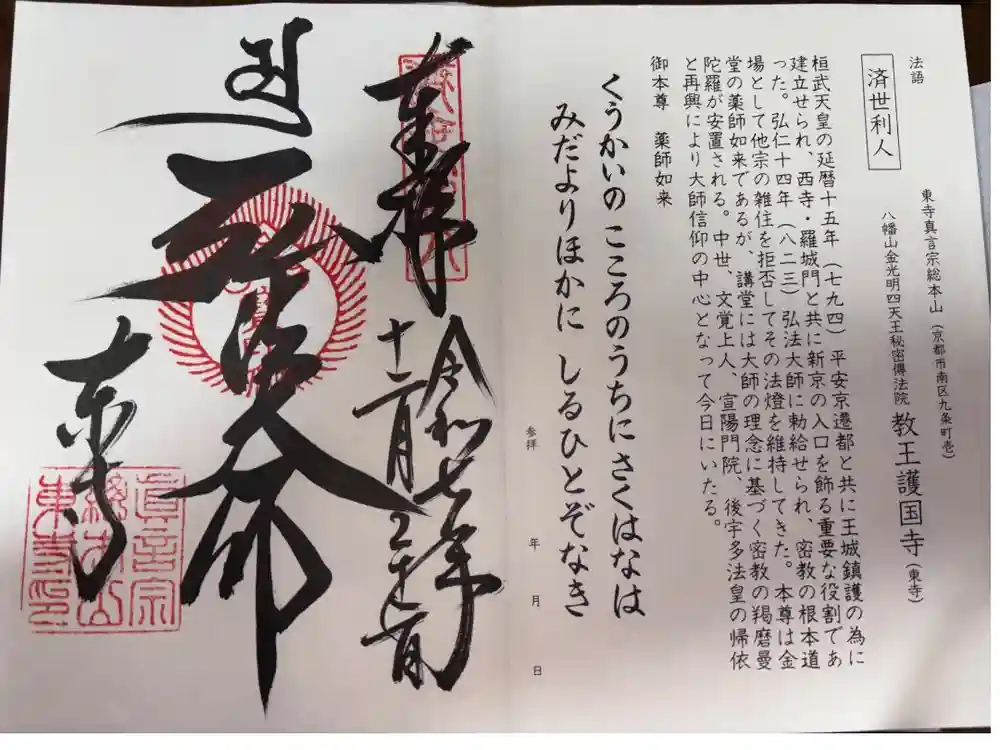 法語
済世利人
東寺真言宗総本山(京都市南区九条町壱)
八幡山金光明四天王秘密傳法院 教王護国寺(東寺)
桓武天皇の延暦十五年(七九四)平安京遷都と共に王城鎮護の為に
建立せられ、西寺・羅城門と共に新京の入口を飾る重要な役割であ
った。弘仁十四年(八二三)弘法大師に勅給せられ、密教の根本道
場として他宗の雑住を拒否してその法燈を維持してきた。本尊は金
堂の薬師如来であるが、講堂には大師の理念に基づく密教の羯磨曼
陀羅が安置される。中世、文覚上人、宣陽門院、後宇多法皇の帰依
と再興により大師信仰の中心となって今日にいたる。
御本尊 薬師如来
くうかいの こころのうちにさくはなは
みだよりほかに しるひとぞなき
参拝 年 月 日
奉拝
令和七年
十二月二十一日
弘法大師
東寺
真言宗
総本山
東寺印